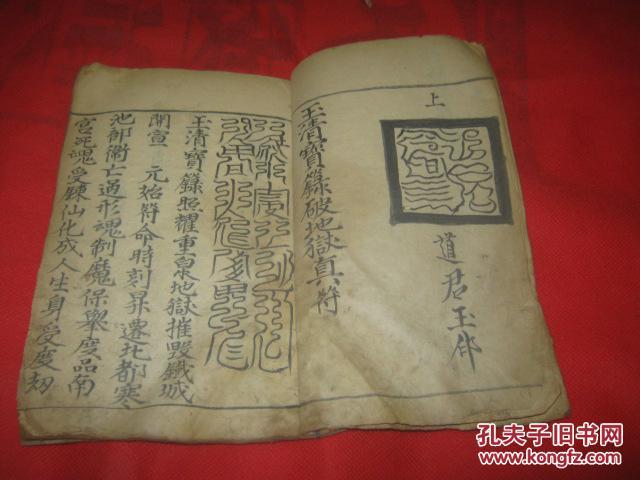 上
道君玉印
玉清寶籙破地獄真符
玉清寶籙照耀重泉地獄摧毀鐵城
開宣 元始符命時刻昇遷北都寒
池部衛亡過形魂制魔保舉度品南
宮死魂受鍊仙化成人生身受度劫
孔夫子旧书网
www.kongfz.com